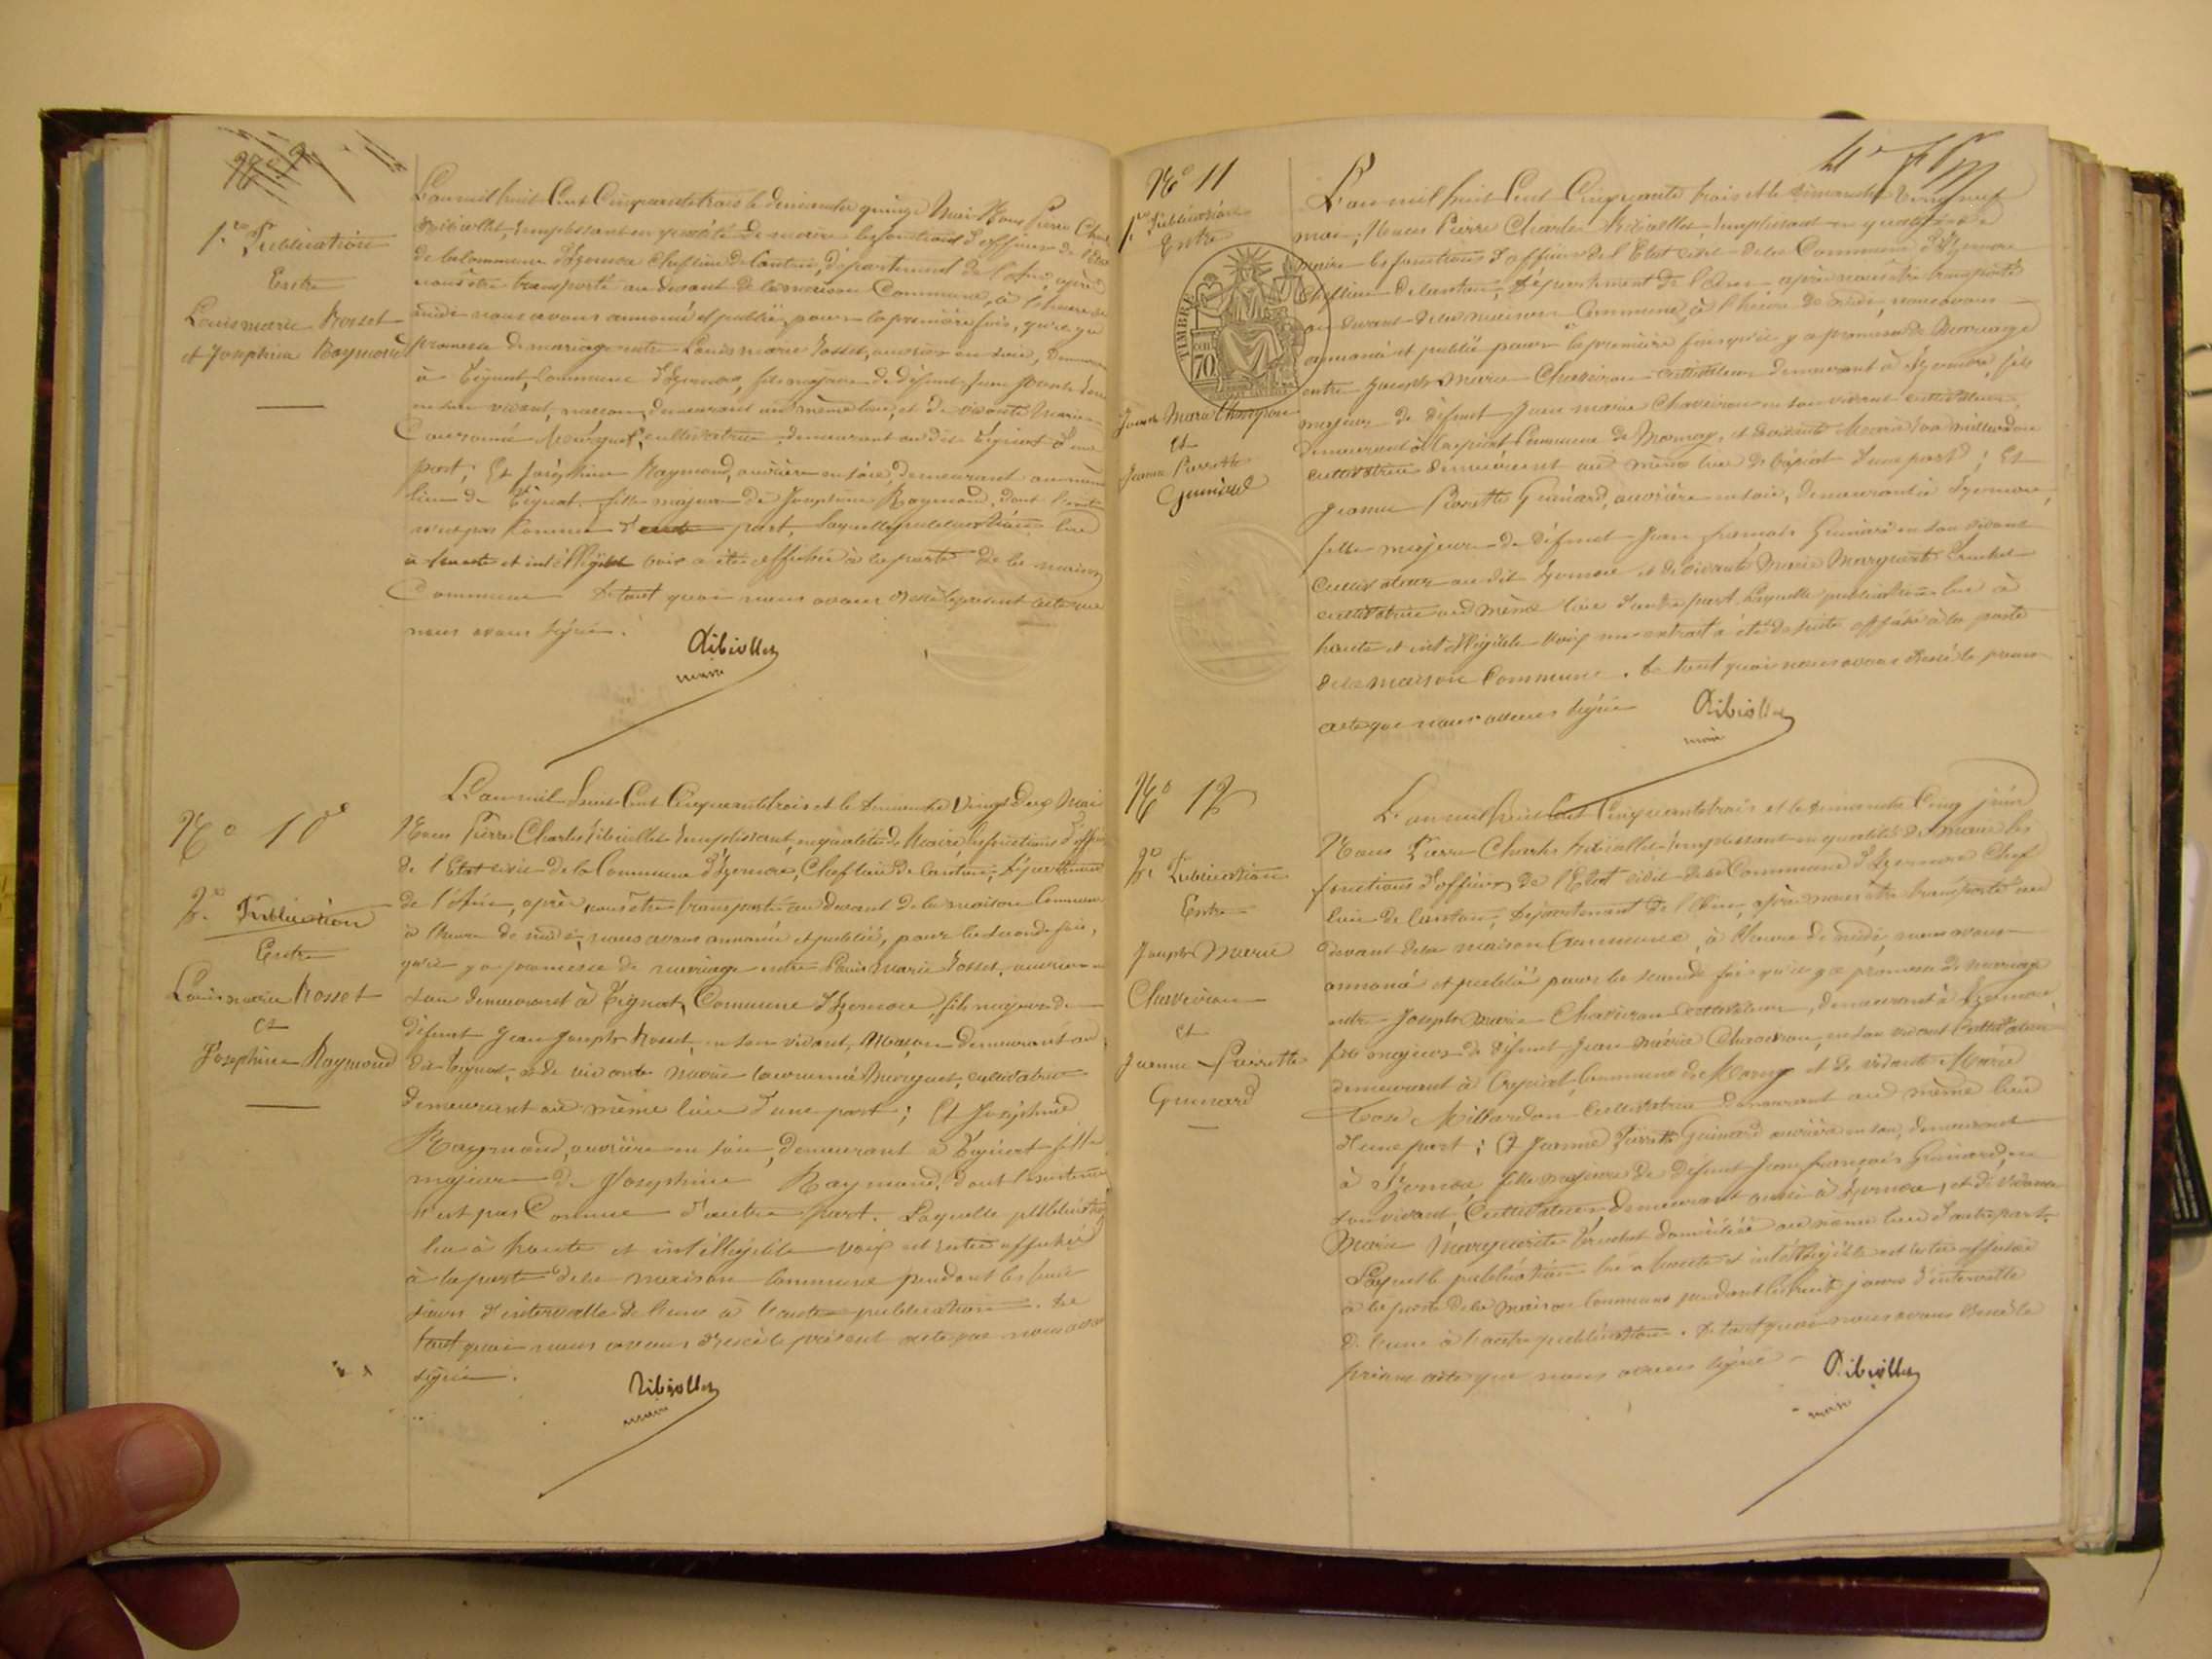 1.re Publication
Entre
Louis marie Rosset
et Josephine Raymond
L'an mil huit Cent Cinquante trois le dimanche quinze Mai Nous Pierre Charles
Ribiollet, remplissant en qualité de maire les fonctions d'officier de l'Etat
de la Commune d'Izernore Chef lieu de Canton, département de l'Ain, après
nous être transporté au devant de la maison Commune, à l'heure de
midi nous avons annoncé et publié pour la première fois, qu'il y a
promesse de mariage entre Louis marie Rosset, ouvrier en soie, demeurant
à Tignat, Commune d'Izernore, fils majeur de défunt Jean Joseph
en son vivant, maçon, demeurant au même lieu, et de vivante Marie
cultivatrice demeurant au dit Tignat d'une
part; Et Joséphine Raymond, ouvrière en soie, demeurant au même
lieu de Tignat fille majeure de Joséphine Raymond, dont
n'est pas Connue d'autre part, Laquelle publication lue
à haute et intelligible voix a été affichée à la porte de la maison
Commune De tout quoi nous avons dressé le présent acte que
nous avons signé.
Ribiollet
maire
N° 10
2.e Publication
Entre
Louis marie Rosset
et
Josephine Raymond
L'an mil huit Cent Cinquante trois et le dimanche Vingt deux Mai
Nous Pierre Charles Ribiollet remplissant, en qualité de Maire, les fonctions d'officier
de l'Etat civil de la Commune d'Izernore, Chef lieu de Canton, Département
de l'Ain, après nous être transporté au devant de la maison Commune
à l'heure de midi, nous avons annoncé et publié, pour la seconde fois,
qu'il y a promesse de mariage entre Louis Marie Rosset, ouvrier en
soie demeurant à Tignat, Commune d'Izernore, fils majeur de
défunt Jean Joseph Rosset, en son vivant, Maçon demeurant au
dit Tignat, et de vivante marie cultivatrice
demeurant au même lieu d'une part; Et Joséphine
Raymond, ouvrière en soie, demeurant à Tignat fille
majeure de Josephine Raymond, dont l'existence
n'est pas Connue d'autre part. Laquelle publication
lue à haute et intelligible voix est restée affichée
à la porte de la maison Commune pendant les huit
jours d'intervalle de l'une à l'autre publication. De
tout quoi nous avons dressé le présent acte que nous avons
signé.
Ribiollet
maire
N° 11
1.re Publication
Entre
Joseph Marie Chaveyron
et
Jeanne Pierrette
Guinard
TIMBRE
70
L'an mil huit Cent Cinquante trois et le dimanche Vingt neuf
mai, Nous Pierre Charles Ribiollet remplissant en qualité de
maire les fonctions d'officier de l'Etat civil de la Commune d'Izernore
Chef lieu de canton, Département de l'Ain, après nous être transporté
au devant de la maison Commune, à l'heure de midi, nous avons
annoncé et publié pour la première fois qu'il y a promesse de Mariage
entre Joseph Marie Chaveiron cultivateur demeurant à Izernore, fils
majeur de défunt Jean marie Chaveiron en son vivant cultivateur,
demeurant à Crépiat Commune de Mornay, et de vivante Marie
cultivatrice demeurant au même lieu de Crépiat d'une part; Et
Jeanne Pierrette Guinard, ouvrière en soie, demeurant à Izernore,
fille majeure de défunt Jean françois Guinard en son vivant
Cultivateur au dit Izernore et de vivante Marie Marguerite
cultivatrice au même lieu d'autre part, Laquelle publication lue à
haute et intelligible voix un extrait a été de suite affiché à la porte
de la maison Commune. De tout quoi nous avons dressé le présent
acte que nous avons signé
Ribiollet
maire
N° 12
2.e Publication
Entre
Joseph Marie
Chaveiron
et
Jeanne Pierrette
Guinard
L'an mil huit Cent Cinquante trois et le dimanche Cinq juin
Nous Pierre Charles Ribiollet remplissant en qualité de maire les
fonctions d'officier de l'Etat civil de la Commune d'Izernore Chef
lieu de Canton, Département de l'Ain, après nous être transporté au
devant de la maison Commune, à l'heure de midi, nous avons
annoncé et publié pour la seconde fois qu'il y a promesse de mariage
entre Joseph Marie Chaveiron cultivateur, demeurant à Izernore,
fils majeur de défunt Jean Marie Chaveiron, en son vivant Cultivateur
demeurant à Crépiat Commune de Mornay et de vivante Marie
Millardon Cultivatrice demeurant au même lieu
d'une part; Et Jeanne Pierrette Guinard ouvrière en soie, demeurant
à Izernore fille majeure de défunt Jean françois Guinard, en
son vivant, Cultivateur demeurant aussi à Izernore, et de vivante
Marie Marguerite domiciliée au même lieu d'autre part.
Laquelle publication lue à haute et intelligible est restée affichée
à la porte de la maison Commune pendant les huit jours d'intervalle
de l'une à l'autre publication. De tout quoi nous avons dressé le
présent acte que nous avons signé
Ribiollet
maire